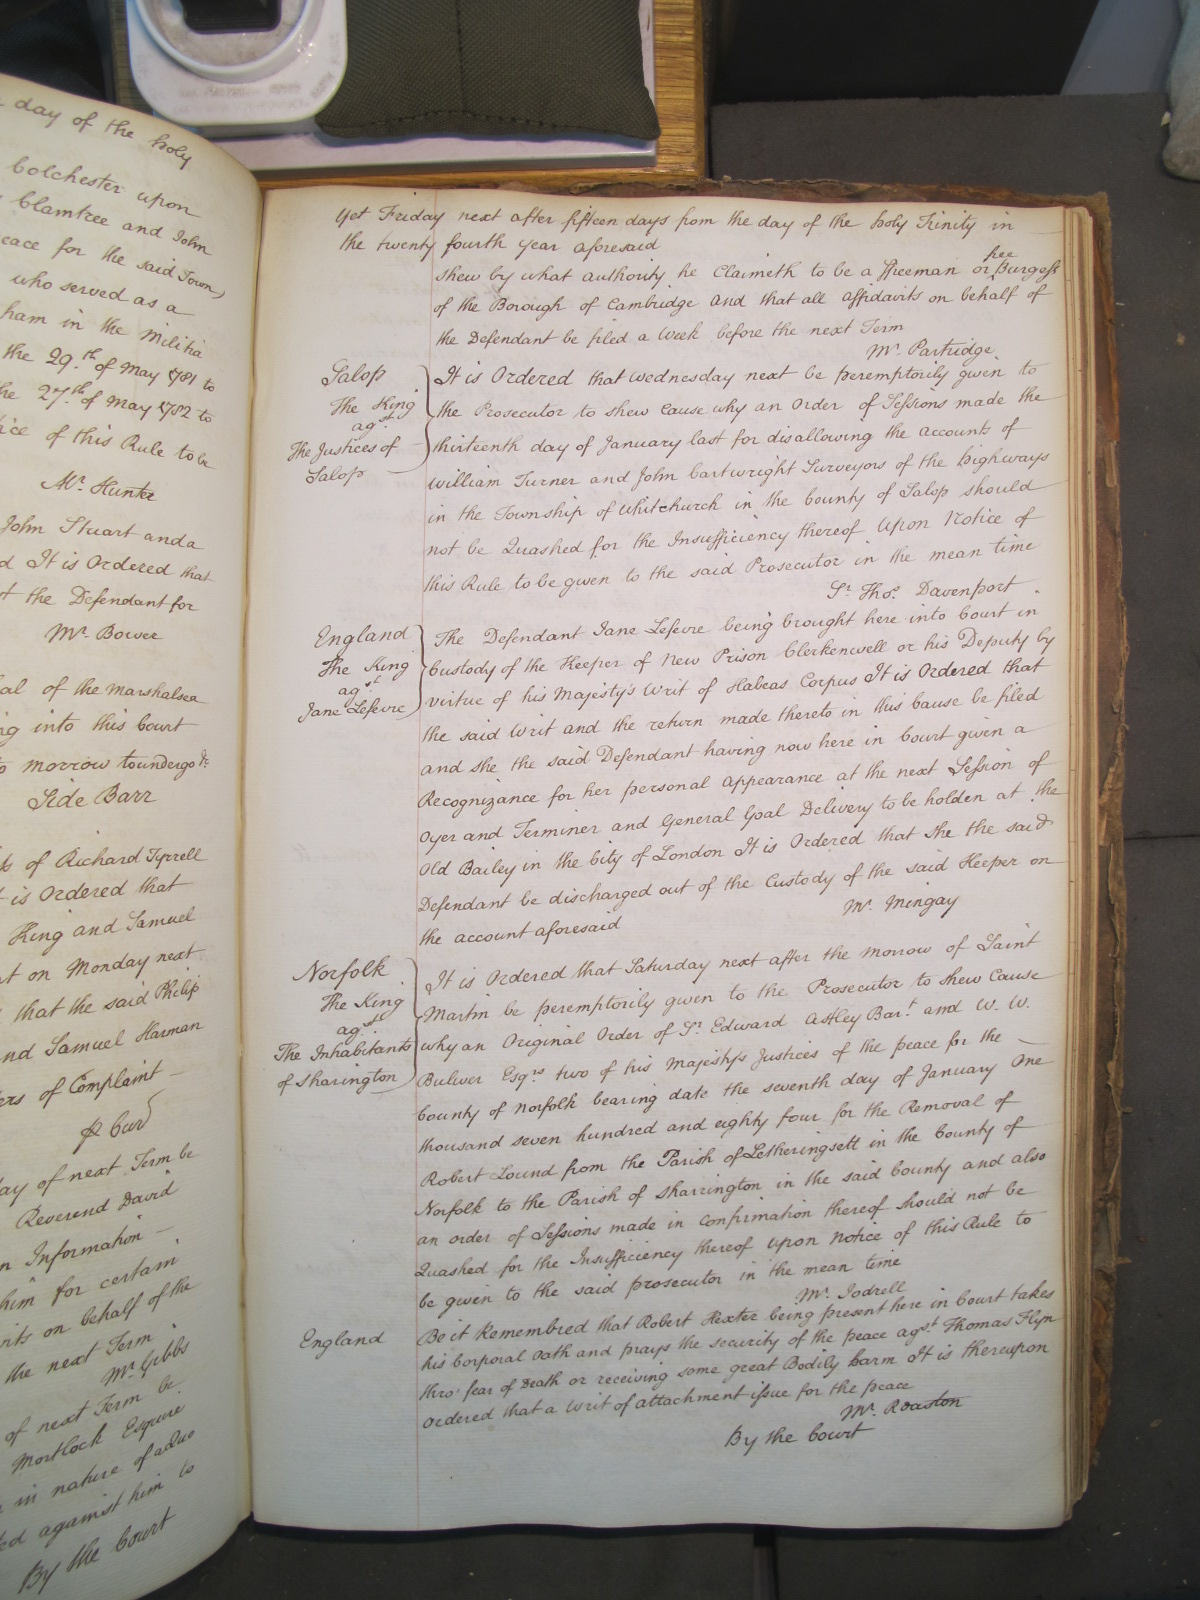 day of the holy
Colchester upon
Clamtree and John
eace for the said Town
who served as a
ham in the Militia
the 29.th of May 1781 to
he 27.th of May 1782 to
ice of this Rule to be
Mr. Hunter
John Stuart and a
d It is Ordered that
t the Defendant for
Mr. Bower
al of the Marshalsea
ng into this Court
o morrow to undergo
Side Barr
of Richard Tyrrell
t is Ordered that
King and Samuel
t on Monday next
that the said Philip
nd Samuel Harman
ers of Complaint
Pr Cur
ay of next Term be
Reverend David
n Information
him for certain
its on behalf of the
the next Term
Mr. Gibbs
of next Term be
Mortlock Esquire
in nature of a Quo
ed against him to
By the Court
Yet Friday next after fifteen days from the day of the holy Trinity in
the twenty fourth year aforesaid
free
shew by what authority he Claimeth to be a ffreeman or Burgess
of the Borough of Cambridge And that all Affidavits on behalf of
the Defendant be filed a Week before the next Term
Mr. Partridge
Salop
The King
agst.
The Justices of
Salop
It is Ordered that Wednesday next be peremptorily given to
the Prosecutor to shew Cause why an Order of Sessions made the
thirteenth day of January last for disallowing the Accounts of
William Turner and John Cartwright Surveyors of the Highways
in the Township of Whitchurch in the County of Salop should
not be Quashed for the Insufficiency thereof Upon Notice of
this Rule to be given to the said Prosecutor in the mean time
Sr. Thos. Davenport
England
The King
agst.
Jane Lefevre
The Defendant Jane Lefevre being brought here into Court in
Custody of the Keeper of New Prison Clerkenwell or his Deputy by
virtue of his Majesty's Writ of Habeas Corpus It is Ordered that
the said Writ and the return made thereto in this Cause be filed
and she the said Defendant having now here in Court given a
Recognizance for her personal Appearance at the next Session of
Oyer and Terminer and General Goal Delivery to be holden at the
Old Bailey in the City of London It is Ordered that she the said
Defendant be discharged out of the Custody of the said Keeper on
the account aforesaid
Mr. Mingay
Norfolk
The King
agst.
The Inhabitants
of Sharington
It is Ordered that Saturday next after the Morrow of Saint
Martin be peremptorily given to the Prosecutor to shew Cause
why an Original Order of Sr. Edward Astley Bart. and W. W.
Bulwer Esqrs. two of his Majesty's Justices of the peace for the
County of Norfolk bearing date the seventh day of January One
thousand seven hundred and eighty four for the Removal of
Robert Lound from the Parish of Letheringsett in the County of
Norfolk to the Parish of Sharrington in the said County and also
an order of Sessions made in Confirmation thereof should not be
Quashed for the Insufficiency thereof Upon Notice of this Rule to
be given to the said prosecutor in the mean time
Mr. Jodrell
England
Be it Remembred that Robert Hexter being present here in Court takes
his Corporal Oath and prays the security of the peace agst. Thomas Flyn
thro' fear of Death or receiving some great Bodily harm It is thereupon
Ordered that a Writ of attachment issue for the peace
Mr. Roaston
By the Court